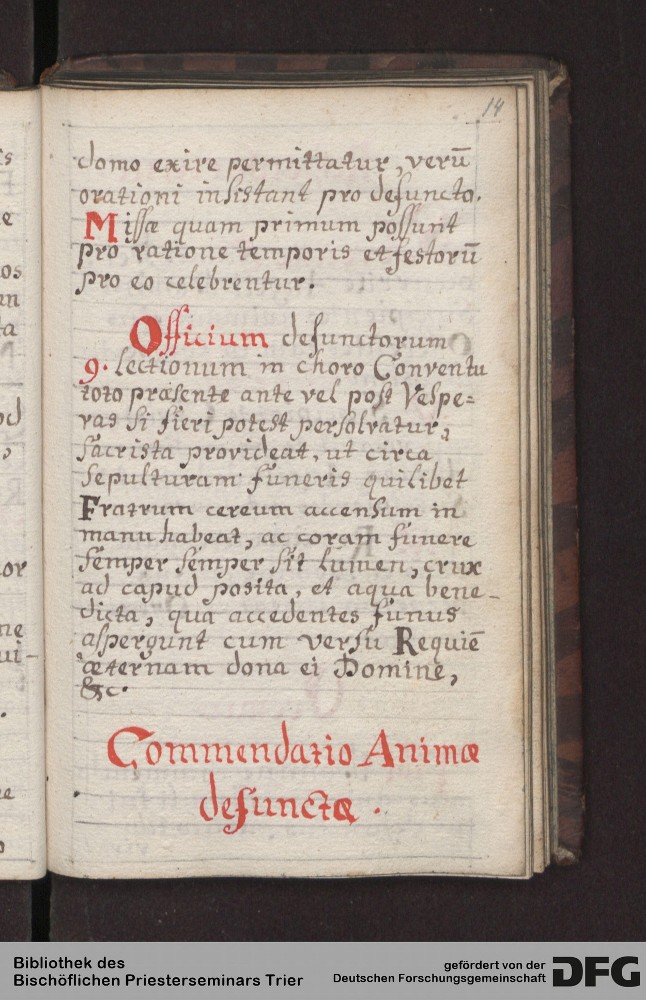 14
domo exire permittatur, verū
orationi insistant pro defuncto.
Missæ quam primum possunt
pro ratione temporis et festorū
pro eo celebrentur.
Officium defunctorum
9. lectionum in choro Conventu
toto præsente ante vel post Vespe=
ras si fieri potest persolvatur,
sacrista provideat, ut circa
sepulturam funeris quilibet
Fratrum cereum accensum in
manu habeat, ac coram funere
semper semper sit lumen, crux
ad capud posita, et aqua bene-
dicta, qua accedentes funus
aspergunt cum versu Requiē
æternam dona ei Domine,
&c.
Commendatio Animæ
defunctæ.
Bibliothek des
Bischöflichen Priesterseminars Trier
gefördert von der
Deutschen Forschungsgemeinschaft
DFG